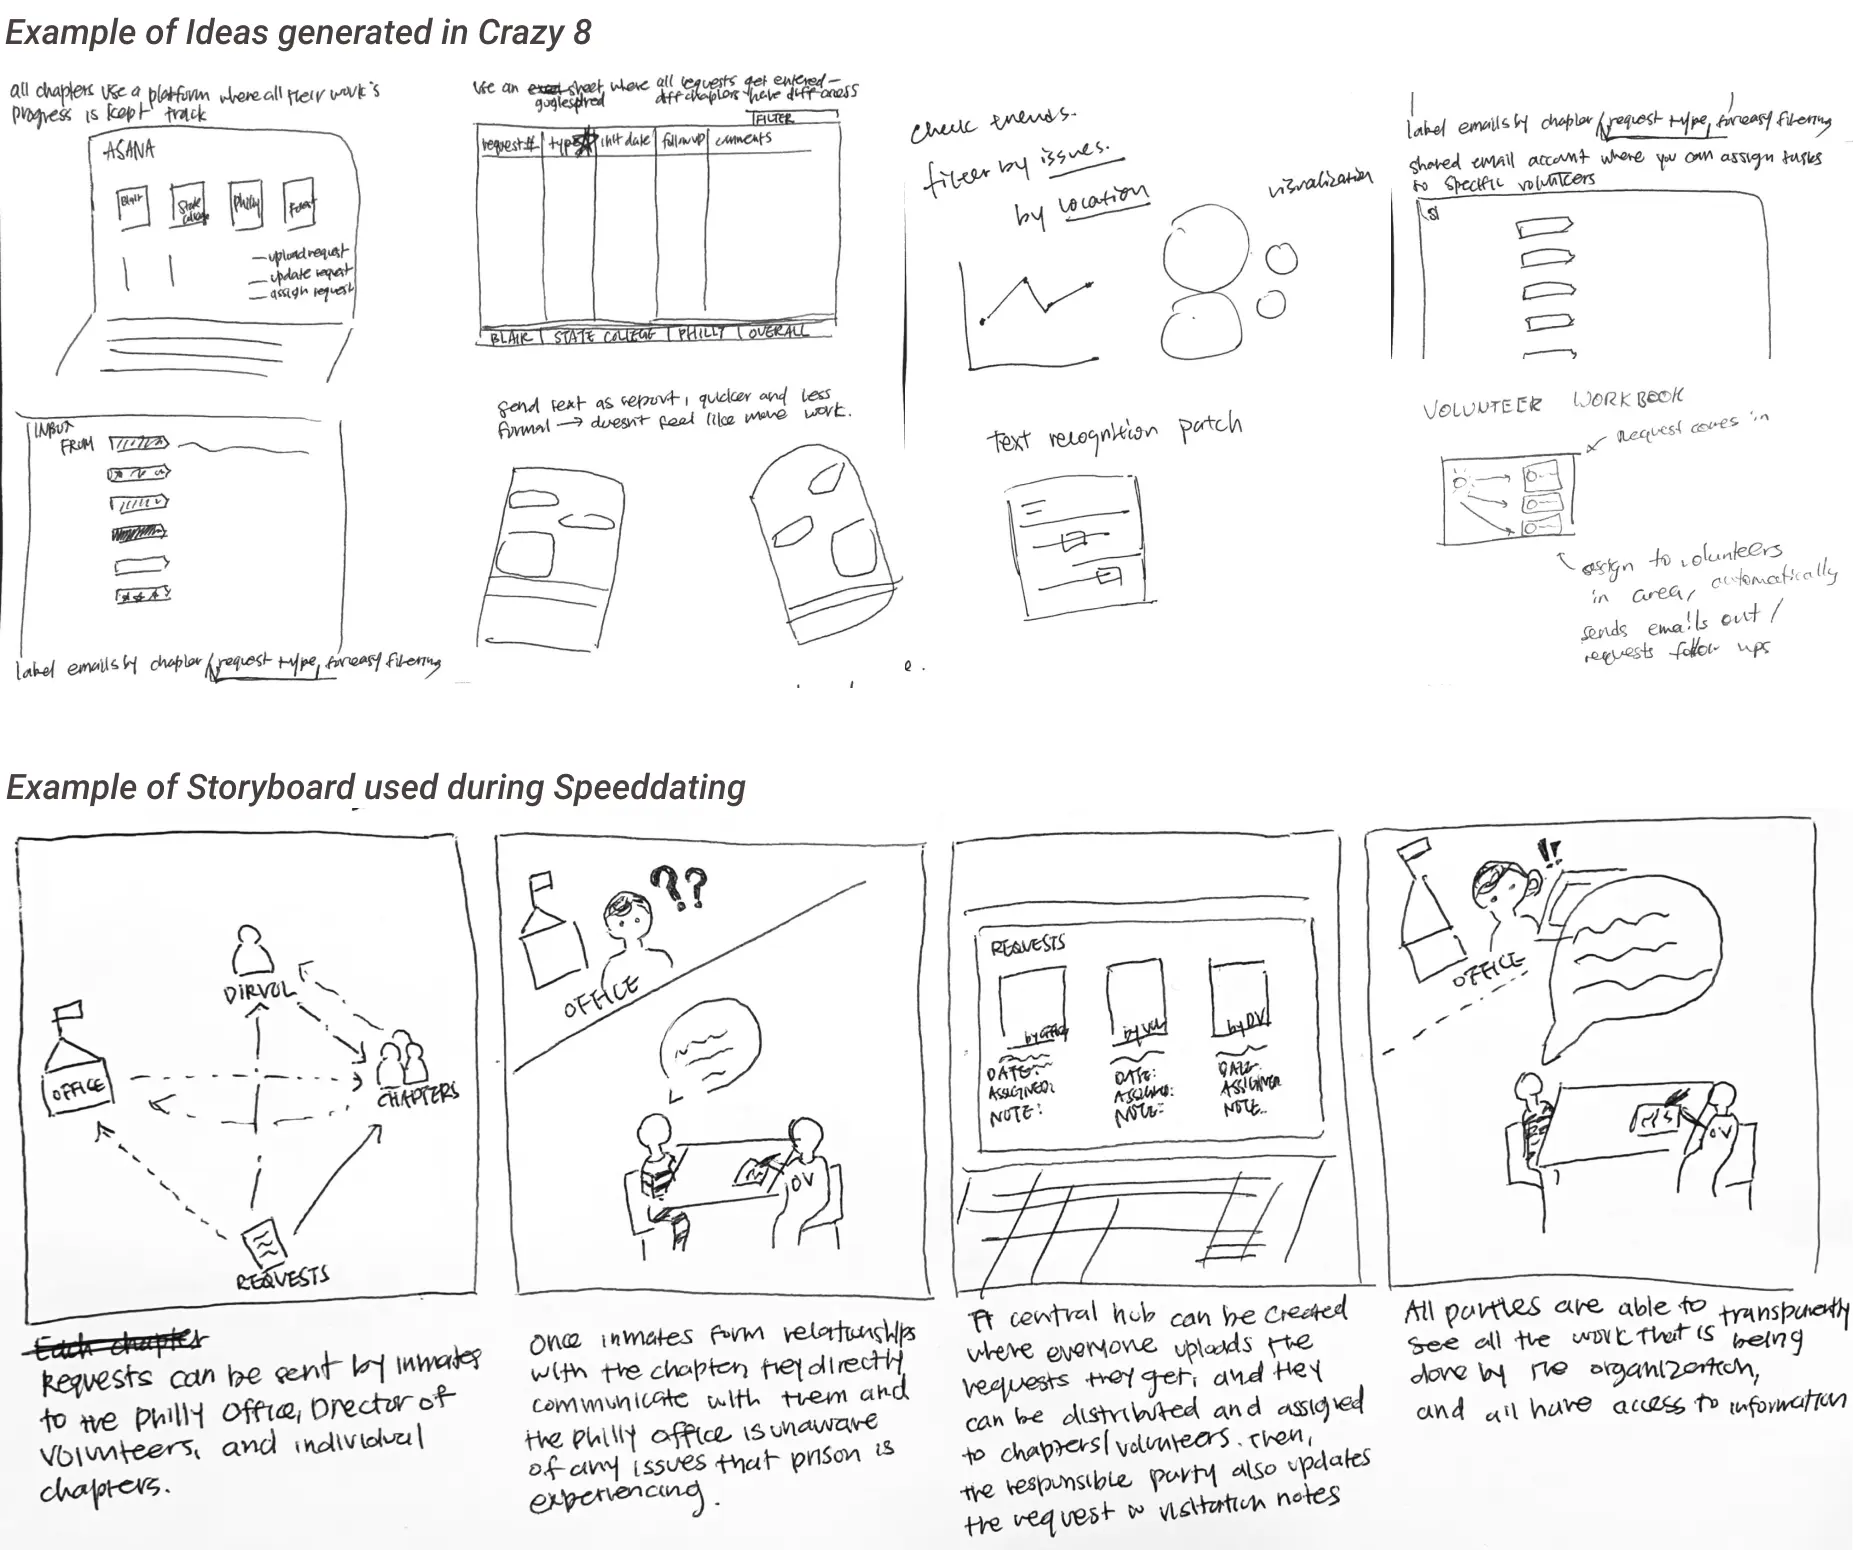 Example of Ideas generated in Crazy 8
all chapters use a platform where all their work's
progress is kept track
ASANA
Blair
State College
Philly
Forest
— upload request
— update request
— assign request
use an excel sheet where all requests get entered —
diff chapters have diff access
FILTER
request #
type
init date
follow up
comments
BLAIR | STATE COLLEGE | PHILLY | OVERALL
check trends.
filter by issues.
by location
visualization
label emails by chapter / request type, for easy filtering
shared email account where you can assign tasks
to specific volunteers
FROM
label emails by chapter / request type, for easy filtering
send text as report, quicker and less
formal → doesn't feel like more work.
Text recognition patch
VOLUNTEER WORKBOOK
Request comes in
assign to volunteers
in area, automatically
sends emails out /
requests follow ups
Example of Storyboard used during Speeddating
DIRVOL
OFFICE
CHAPTERS
REQUESTS
Each chapter
Requests can be sent by inmates
to the Philly Office, Director of
volunteers, and individual
chapters.
??
OFFICE
OV
Once inmates form relationships
with the chapter, they directly
communicate with them and
the philly office is unaware
of any issues that prison is
experiencing.
REQUESTS
by Office
by Vol
by DV
DATE:
ASSIGNED:
NOTE:
DATE:
ASSIGNED:
NOTE:
DATE:
ASSIGNED
NOTE..
A central hub can be created
where everyone uploads the
requests they get, and they
can be distributed and assigned
to chapters/volunteers. Then,
the responsible party also updates
the request w visitation notes
!!
OFFICE
OV
All parties are able to transparently
see all the work that is being
done by the organization,
and all have access to information